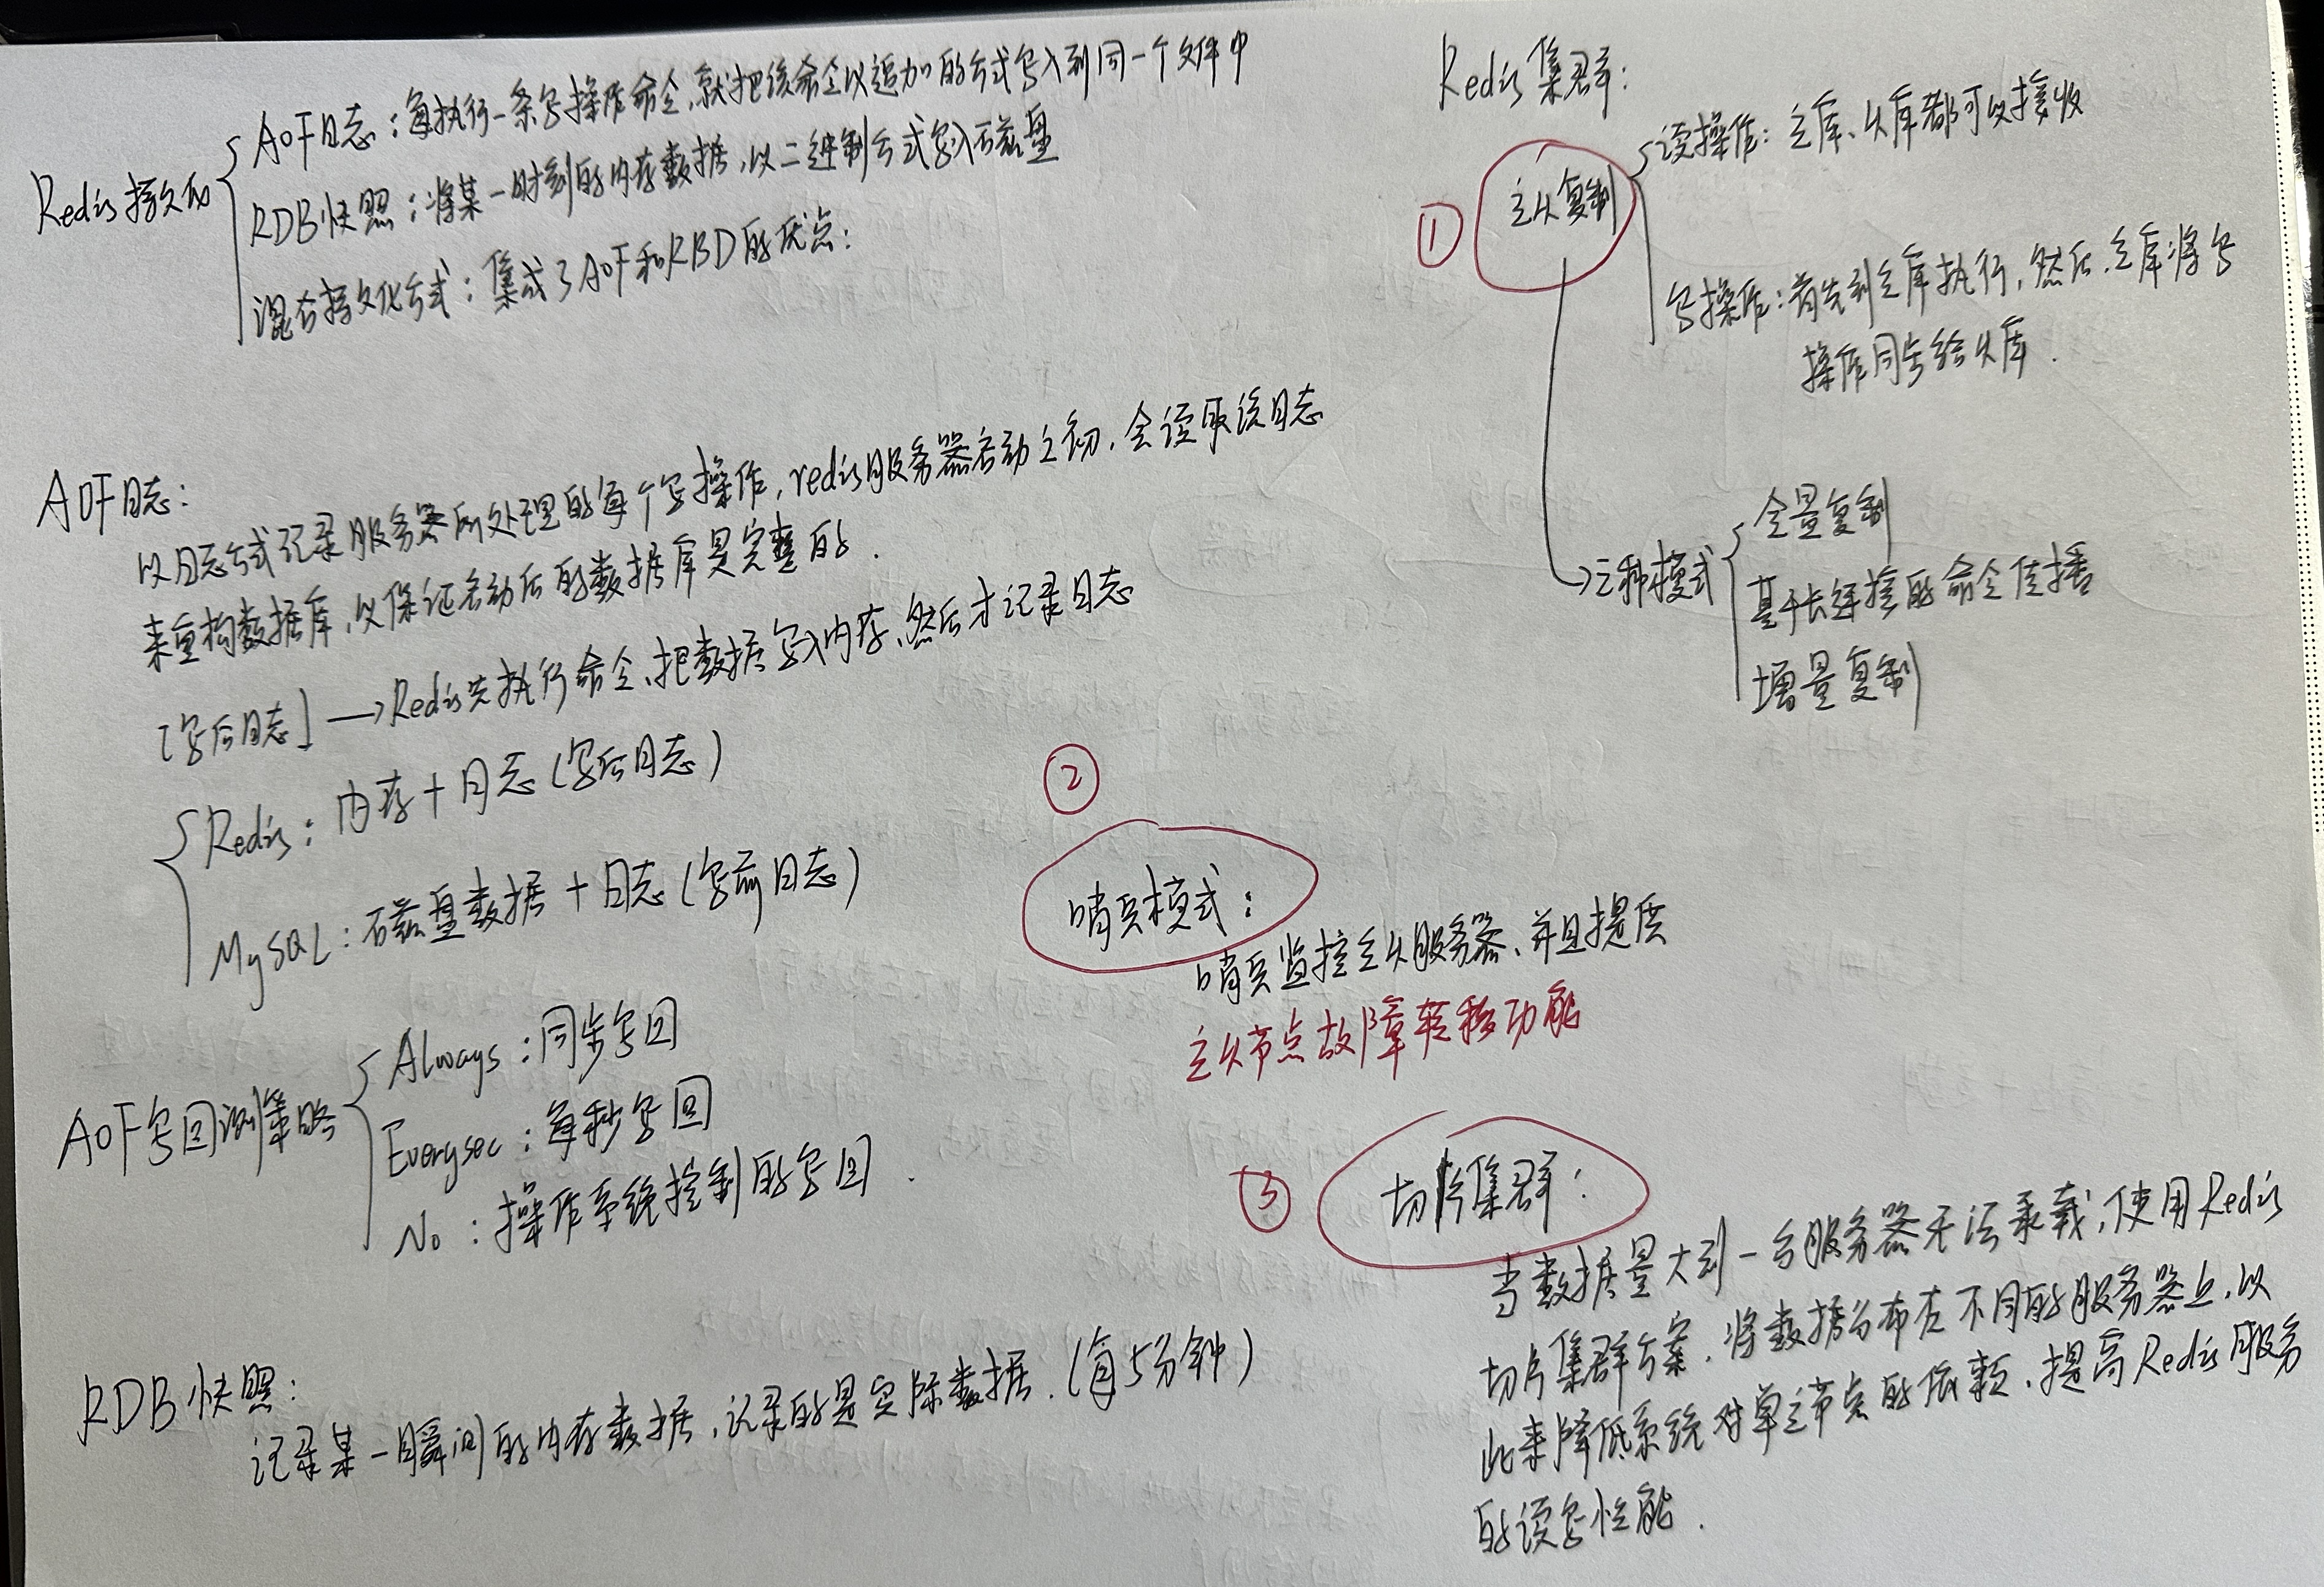 Redis持久化
AOF日志：每执行一条写操作命令，就把该命令以追加的方式写入到同一个文件中
RDB快照：将某一时刻的内存数据，以二进制方式写入磁盘
混合持久化方式：集成了AOF和RBD的优点：
AOF日志：
以日志方式记录服务器所处理的每个写操作，redis服务器启动之初，会读取该日志
来重构数据库，以保证启动后的数据库是完整的．
[写后日志]→Redis先执行命令、把数据写入内存、然后才记录日志
Redis：内存+日志(写后日志)
MySQL：磁盘数据+日志(写前日志)
AOF写回策略
Always：同步写回
Everysec：每秒写回
No：操作系统控制的写回．
RDB快照：
记录某一瞬间的内存数据，记录的是实际数据．(每5分钟)
Redis集群：
① 主从复制
读操作：主库、从库都可以接收
写操作：首先到主库执行，然后，主库将写
操作同步给从库．
→三种模式
全量复制
基于长连接的命令传播
增量复制
②
哨兵模式：
哨兵监控主从服务器、并且提供
主从节点故障转移功能
③ 切片集群：
当数据量大到一台服务器无法承载，使用Redis
切片集群方案，将数据分布在不同的服务器上，以
此来降低系统对单主节点的依赖、提高Redis服务
的读写性能．